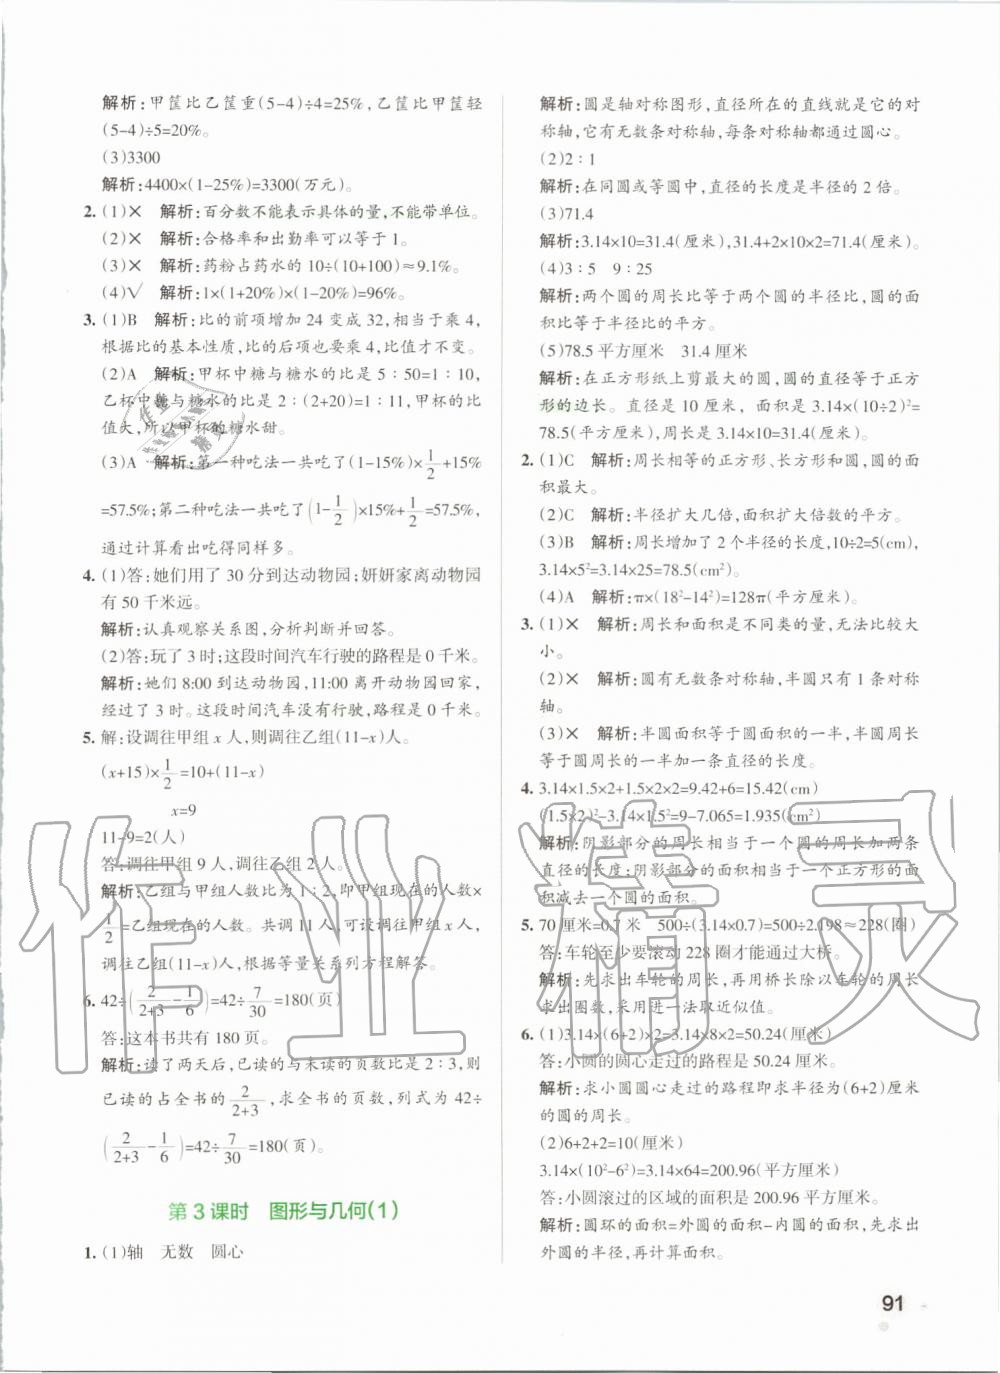 解析:甲筐比乙筐重(5-4)÷4=25%,乙筐比甲筐轻
(5-4)÷5=20%。
(3)3300
解析:4400×(1-25%)=3300(万元)。
2. (1)× 解析:百分数不能表示具体的量,不能带单位。
(2)× 解析:合格率和出勤率可以等于1。
(3)× 解析:药粉占药水的10÷(10+100)≈9.1%。
(4)√ 解析:1×(1+20%)×(1-20%)=96%。
3. (1)B 解析:比的前项增加24变成32,相当于乘4,
根据比的基本性质,比的后项也要乘4,比值才不变。
(2)A 解析:甲杯中糖与糖水的比是5:50=1:10,
乙杯中糖与糖水的比是2:(2+20)=1:11,甲杯的比
值大,所以甲杯的糖水甜。
(3)A 解析:第一种吃法一共吃了(1-15%)×1/2+15%
=57.5%;第二种吃法一共吃了(1-1/2)×15%+1/2=57.5%,
通过计算看出吃得同样多。
4. (1)答:她们用了30分到达动物园;妍妍家离动物园
有50千米远。
解析:认真观察关系图,分析判断并回答。
(2)答:玩了3时;这段时间汽车行驶的路程是0千米。
解析:她们8:00到达动物园,11:00离开动物园回家,
一共玩了3时。这段时间汽车没有行驶,路程是0千米。
5. 解:设调往甲组x人,则调往乙组(11-x)人。
(x+15)×1/2=10+(11-x)
x=9
11-9=2(人)
答:调往甲组9人,调往乙组2人。
解析:乙组与甲组人数比为1:2,即甲组现在的人数×
1/2=乙组现在的人数。共调11人,可设调往甲组x人,
调往乙组(11-x)人,根据等量关系列方程解答。
6. 42÷(2/(2+3)-1/6)=42÷7/30=180(页)
答:这本书共有180页。
解析:读了两天后,已读的与未读的页数比是2:3,则
已读的占全书的2/(2+3),求全书的页数,列式为42÷
(2/(2+3)-1/6)=42÷7/30=180(页)。
第3课时 图形与几何(1)
1. (1)轴 无数 圆心
解析:圆是轴对称图形,直径所在的直线就是它的对
称轴,它有无数条对称轴,每条对称轴都通过圆心。
(2)2:1
解析:在同圆或等圆中,直径的长度是半径的2倍。
(3)71.4
解析:3.14×10=31.4(厘米),31.4+2×10×2=71.4(厘米)。
(4)3:5 9:25
解析:两个圆的周长比等于两个圆的半径比,圆的面
积比等于半径比的平方。
(5)78.5平方厘米 31.4厘米
解析:在正方形纸上剪最大的圆,圆的直径等于正方
形的边长。直径是10厘米,面积是3.14×(10÷2)²=
78.5(平方厘米),周长是3.14×10=31.4(厘米)。
2. (1)C 解析:周长相等的正方形、长方形和圆,圆的面
积最大。
(2)C 解析:半径扩大几倍,面积扩大倍数的平方。
(3)B 解析:周长增加了2个半径的长度,10÷2=5(cm),
3.14×5²=3.14×25=78.5(cm²)。
(4)A 解析:π×(18²-14²)=128π(平方厘米)。
3. (1)× 解析:周长和面积是不同类的量,无法比较大
小。
(2)× 解析:圆有无数条对称轴,半圆只有1条对称
轴。
(3)× 解析:半圆面积等于圆面积的一半,半圆周长
等于圆周长的一半加一条直径的长度。
4. 3.14×1.5×2+1.5×2×2=9.42+6=15.42(cm)
(1.5×2)²-3.14×1.5²=9-7.065=1.935(cm²)
解析:阴影部分的周长相当于一个圆的周长加两条
直径的长度;阴影部分的面积相当于一个正方形的面
积减去一个圆的面积。
5. 70厘米=0.7米 500÷(3.14×0.7)=500÷2.198≈228(圈)
答:车轮至少要滚动228圈才能通过大桥。
解析:先求出车轮的周长,再用桥长除以车轮的周长
求出圈数,采用进一法取近似值。
6. (1)3.14×(6+2)×2=3.14×8×2=50.24(厘米)
答:小圆的圆心走过的路程是50.24厘米。
解析:求小圆圆心走过的路程即求半径为(6+2)厘米
的圆的周长。
(2)6+2+2=10(厘米)
3.14×(10²-6²)=3.14×64=200.96(平方厘米)
答:小圆滚过的区域的面积是200.96平方厘米。
解析:圆环的面积=外圆的面积-内圆的面积,先求出
外圆的半径,再计算面积。
91
作业精灵